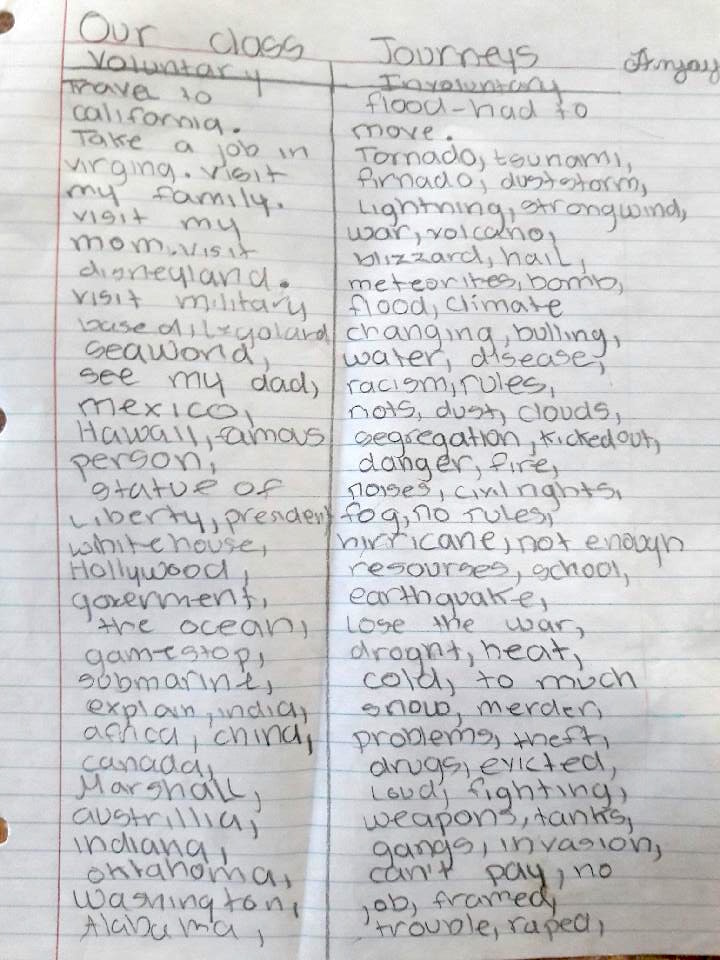 Our class Journeys
Voluntary
Travel to
california.
Take a job in
virging. visit
my family.
visit my
mom. visit
disneyland.
visit military
base
seaworld,
see my dad,
mexico,
Hawaii, famous
person,
statue of
Liberty, president
white house,
Hollywood,
goverment,
the ocean,
gamestop,
submarine,
explain, india,
africa, china,
canada,
Marshall,
austrillia,
indiana,
oklahoma,
washington,
Alabama,
Involuntary
flood-had to
move.
Tornado, tsunami,
firnado, duststorm,
Lightning, strongwind,
war, volcano,
blizzard, hail,
meteorites, bomb,
flood, climate
changing, bulling,
water, disease,
racism, rules,
riots, dust, clouds,
segregation, kickedout,
danger, fire,
noises, civil rights,
fog, no rules,
hirricane, not enough
resourses, school,
earthquake,
Lose the war,
droght, heat,
cold, to much
snow, merder,
problems, theft,
drugs, evicted,
Loud, fighting,
weapons, tanks,
gangs, invasion,
can't pay, no
job, framed,
trouble, raped,